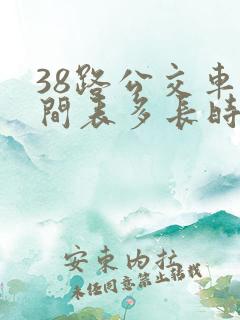 38路公交車
間表多長時
安東内拉
未经同意禁止转载